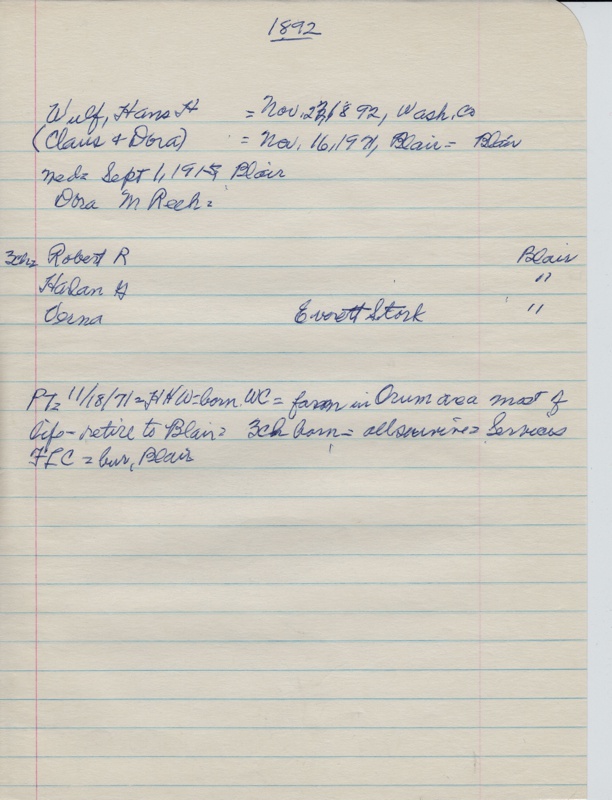 1892
Wulf, Hans H = Nov. 27, 1892, Wash. Co
(Claus & Dora) = Nov. 16, 1971, Blair = Blair
med= Sept 1, 1915 Blair
Dora M Rech=
3ch= Robert R Blair
Harlan H "
Verna Everett Stork "
PT= 11/18/71= HHW=born WC = farm in Orum area most of
life - retire to Blair = 3ch born = all survive = Services
FLC = bur, Blair